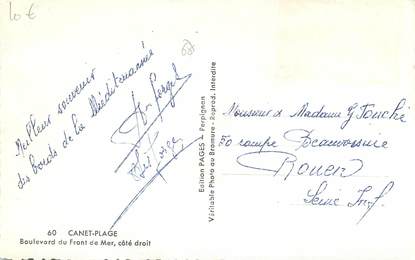 10€
Meilleur souvenir
des bords de la Méditerranée
Edition PAGES - Perpignan
Véritable Photo au Bromure - Reprod. Interdite
Monsieur & Madame G Touché
50 rampe Beauvoisine
Rouen
Seine Inf.
60 CANET-PLAGE
Boulevard du Front de Mer, côté droit